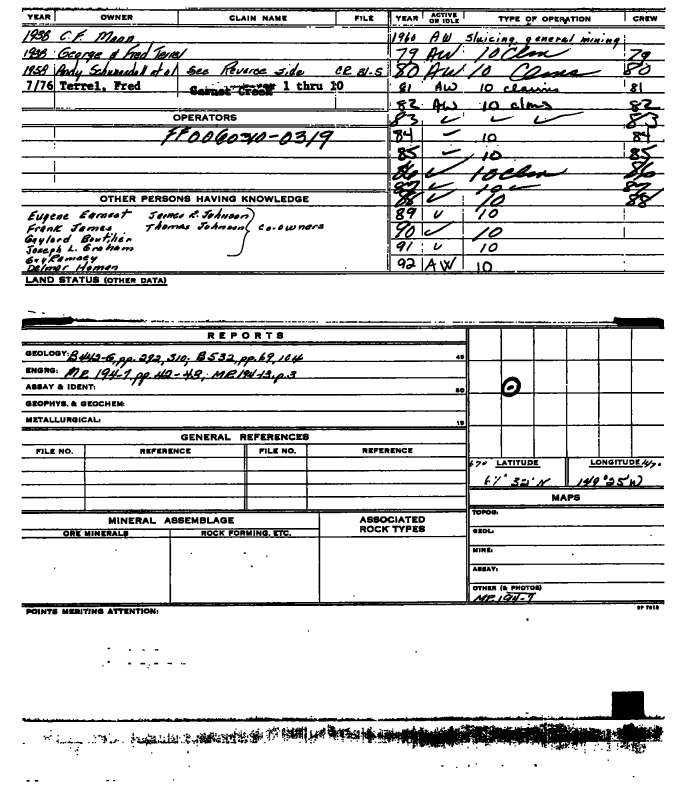 YEAR OWNER CLAIM NAME FILE
1938 C.F. Moon
1938 George & Fred Terrel
1958 Andy et al See Reverse side
7/76 Terrel, Fred Garnet Creek 1 thru 10
OPERATORS
FF006030-0319
OTHER PERSONS HAVING KNOWLEDGE
Eugene Earnest James R. Johnson
Frank James Thomas Johnson co-owners
Gaylord
Joseph L. Graham
Guy Ramsey
Delmar Homan
LAND STATUS (OTHER DATA)
YEAR ACTIVE OR IDLE TYPE OF OPERATION CREW
1960 AW Sluicing, general mining
79 AW 10 Clm 79
80 AW 10 Clms 80
81 AW 10 claims 81
82 AW 10 clms 82
83 ✓ ✓ ✓ 83
84 ✓ 10 84
85 ✓ 10 85
86 ✓ 10 Clm 86
87 ✓ 10 ✓ 87
88 ✓ 10 88
89 ✓ 10
90 ✓ 10
91 ✓ 10
92 AW 10
REPORTS
GEOLOGY: B442-G, pp. 292, 310; B532, pp. 69, 104
ENGRG: MR 194-7, pp. 42-43; MR 194-13, p. 3
ASSAY & IDENT:
GEOPHYS. & GEOCHEM:
METALLURGICAL:
GENERAL REFERENCES
FILE NO. REFERENCE FILE NO. REFERENCE
MINERAL ASSEMBLAGE
ORE MINERALS ROCK FORMING, ETC.
ASSOCIATED ROCK TYPES
67° LATITUDE LONGITUDE
67° 32' N 149° 25' W
MAPS
TOPOG:
GEOL:
MINE:
ASSAY:
OTHER (& PHOTOS)
MR 194-7
POINTS MERITING ATTENTION: